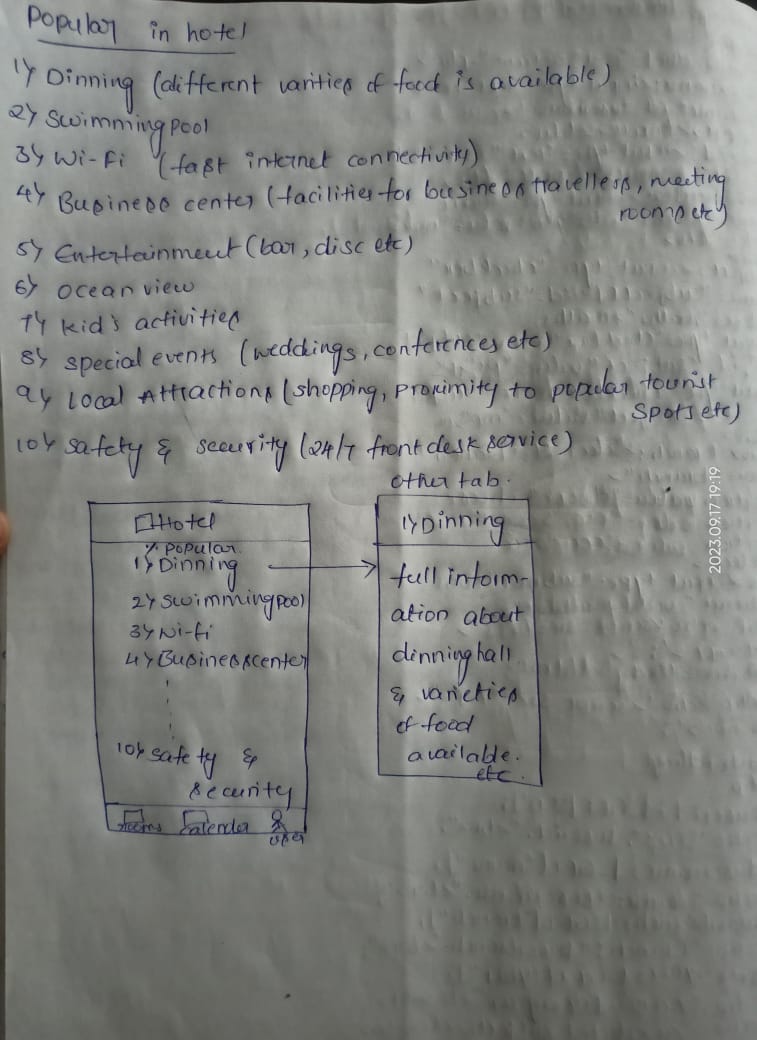 Popular in hotel
1) Dinning (different varities of food is available)
2) Swimming pool
3) Wi-Fi (fast internet connectivity)
4) Business center (facilities for business travellers, meeting
rooms etc)
5) Entertainment (bar, disc etc)
6) ocean view
7) kid's activities
8) special events (weddings, conferences etc)
9) Local Attractions (shopping, proximity to popular tourist
spots etc)
10) safety & security (24/7 front desk service)
other tab.
Hotel
Popular
1) Dinning
2) Swimming pool
3) Wi-fi
4) Business center
10) safety &
security
Rooms Calender User
1) Dinning
full inform-
ation about
dinning hall
& varieties
of food
available.
etc.
2023.09.17 19:19